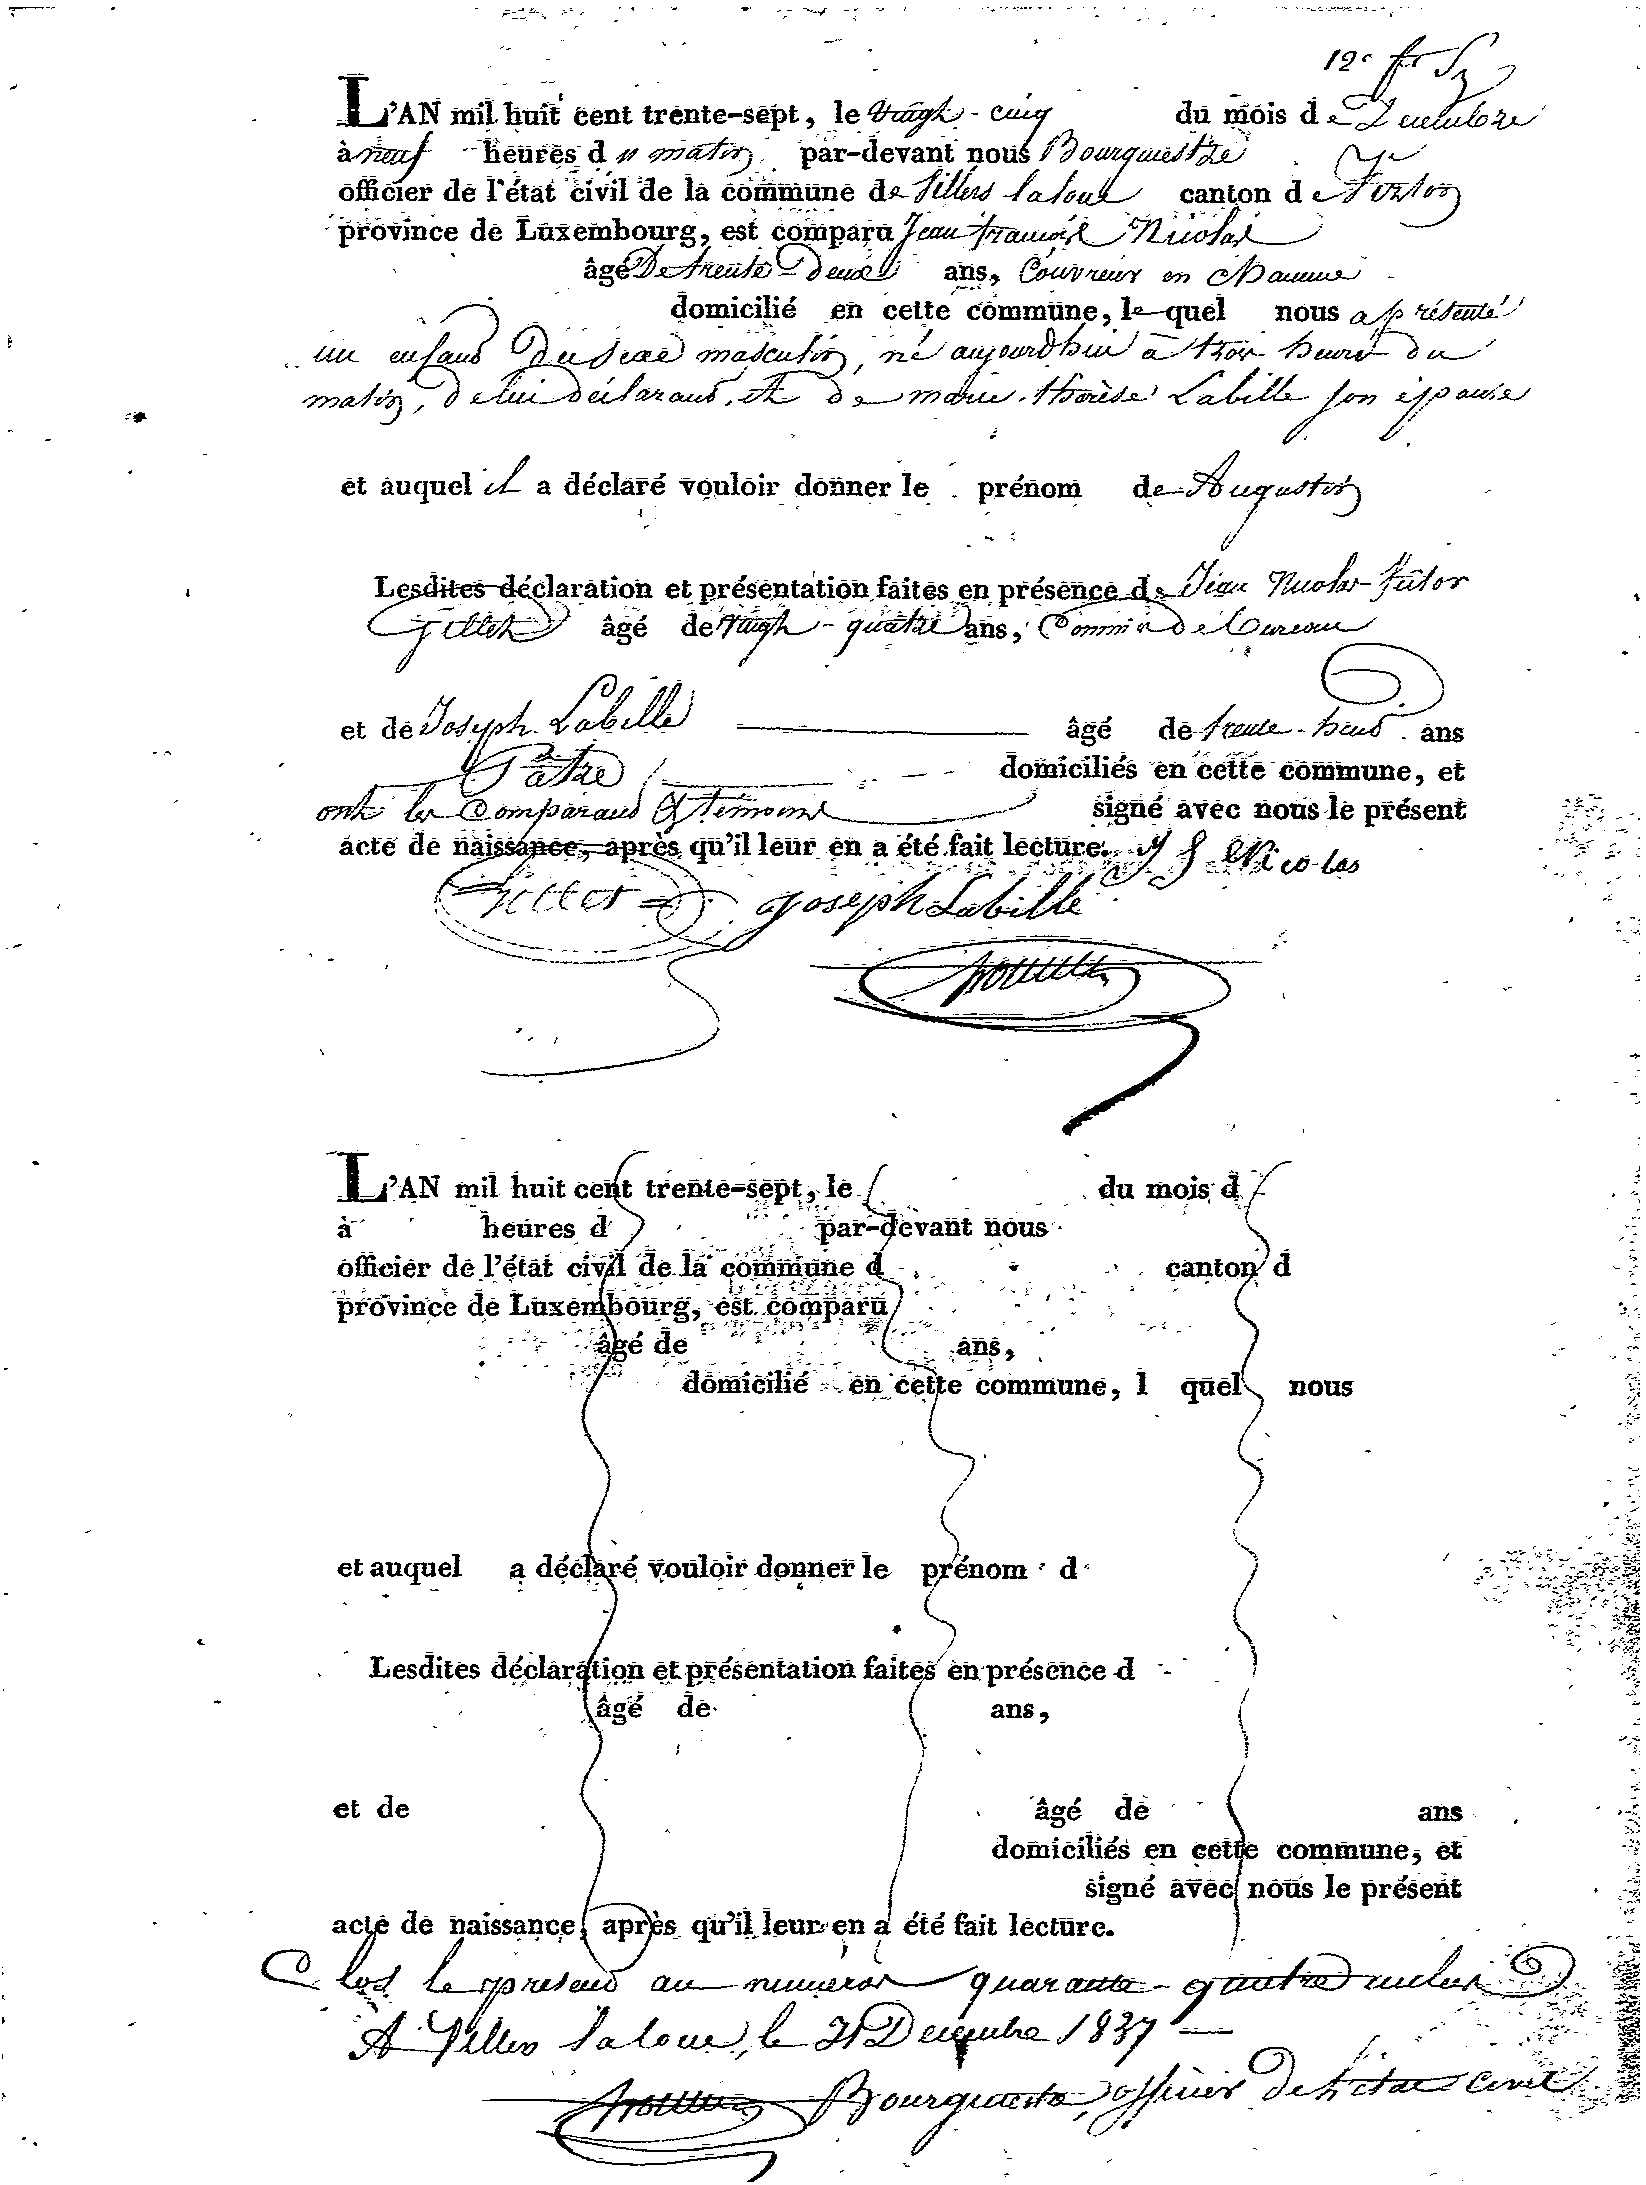 L'AN mil huit cent trente-sept, le vingt-cinq du mois de Décembre
à neuf heures du matin par-devant nous Bourgmestre
officier de l'état civil de la commune de Villers la loue canton de Virton
province de Luxembourg, est comparu Jean françois Nicolas
âgé De trente Deux ans, Couvreur en Chaume
domicilié en cette commune, lequel nous a présenté
un enfant Du sexe masculin, né aujourdhui à trois heures du
matin, de lui déclarant, et de marie thérèse Labille son épouse
et auquel il a déclaré vouloir donner le prénom de Augustin
Lesdites déclaration et présentation faites en présence de Jean Nicolas Victor
Gillet âgé de vingt-quatre ans, Commis de bureau
et de Joseph Labille âgé de trente-huit ans
Pâtre domiciliés en cette commune, et
ont les Comparant & témoins signé avec nous le présent
acte de naissance, après qu'il leur en a été fait lecture. J f Nicolas
Gillet Joseph Labille
L'AN mil huit cent trente-sept, le du mois d
à heures d par-devant nous
officier de l'état civil de la commune d canton d
province de Luxembourg, est comparu
âgé de ans,
domicilié en cette commune, l quel nous
et auquel a déclaré vouloir donner le prénom d
Lesdites déclaration et présentation faites en présence d
âgé de ans,
et de âgé de ans
domiciliés en cette commune, et
signé avec nous le présent
acte de naissance, après qu'il leur en a été fait lecture.
Clos le présent au numéros quarante-quatre inclus
A Villers la loue, le 31 Decembre 1837
Bourgmestre, officier De l'état civil